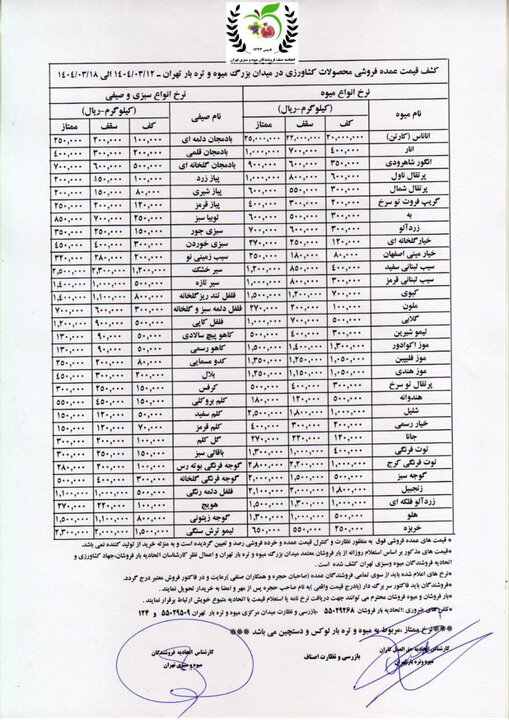 تاسیس ۱۳۲۲
اتحادیه صنف فروشندگان میوه و سبزی تهران
کشف قیمت عمده فروشی محصولات کشاورزی در میدان بزرگ میوه و تره بار تهران – ۱۴۰۴/۰۳/۱۲ الی ۱۴۰۴/۰۳/۱۸
نرخ انواع میوه نرخ انواع سبزی و صیفی
نام میوه (کیلوگرم-ریال) نام صیفی (کیلوگرم-ریال)
کف سقف ممتاز کف سقف ممتاز
آناناس (کارتن) ۲۰,۰۰۰,۰۰۰ ۲۲,۰۰۰,۰۰۰ ۲۵,۰۰۰,۰۰۰ بادمجان دلمه ای ۱۰۰,۰۰۰ ۲۰۰,۰۰۰ ۲۵۰,۰۰۰
انار ۴۰۰,۰۰۰ ۷۰۰,۰۰۰ ۱,۰۰۰,۰۰۰ بادمجان قلمی ۲۰۰,۰۰۰ ۳۰۰,۰۰۰ ۴۰۰,۰۰۰
انگور شاهرودی ۳۵۰,۰۰۰ ۶۰۰,۰۰۰ ۹۰۰,۰۰۰ بادمجان گلخانه ای ۶۰۰,۰۰۰ ۷۰۰,۰۰۰
پرتقال ناول ۶۰۰,۰۰۰ ۸۰۰,۰۰۰ ۱,۰۰۰,۰۰۰ پیاز زرد ۱۰۰,۰۰۰ ۱۵۰,۰۰۰ ۲۰۰,۰۰۰
پرتقال شمال ۳۰۰,۰۰۰ ۵۵۰,۰۰۰ ۶۰۰,۰۰۰ پیاز شیری ۸۰,۰۰۰ ۱۵۰,۰۰۰ ۲۰۰,۰۰۰
گریپ فروت تو سرخ ۲۰۰,۰۰۰ ۳۰۰,۰۰۰ ۴۰۰,۰۰۰ پیاز قرمز ۱۲۰,۰۰۰ ۲۰۰,۰۰۰ ۲۵۰,۰۰۰
به ۳۰۰,۰۰۰ ۵۰۰,۰۰۰ ۶۰۰,۰۰۰ لوبیا سبز ۲۵۰,۰۰۰ ۷۰۰,۰۰۰ ۸۵۰,۰۰۰
زردآلو ۳۰۰,۰۰۰ ۶۰۰,۰۰۰ ۷۰۰,۰۰۰ سبزی جور ۱۵۰,۰۰۰ ۲۵۰,۰۰۰ ۳۵۰,۰۰۰
خیارگلخانه ای ۱۲۰,۰۰۰ ۲۵۰,۰۰۰ ۲۷۰,۰۰۰ سبزی خوردن ۳۰۰,۰۰۰ ۴۰۰,۰۰۰ ۴۵۰,۰۰۰
خیار مینی اصفهان ۸۰,۰۰۰ ۱۸۰,۰۰۰ ۲۵۰,۰۰۰ سیب زمینی نو ۲۰۰,۰۰۰ ۲۸۰,۰۰۰ ۳۲۰,۰۰۰
سیب لبنانی سفید ۴۰۰,۰۰۰ ۸۵۰,۰۰۰ ۱,۲۰۰,۰۰۰ سیر خشک ۱,۲۰۰,۰۰۰ ۲,۳۰۰,۰۰۰ ۲,۵۰۰,۰۰۰
سیب لبنانی قرمز ۳۰۰,۰۰۰ ۸۰۰,۰۰۰ ۱,۰۰۰,۰۰۰ سیر تازه ۵۰۰,۰۰۰ ۱,۰۰۰,۰۰۰
کیوی ۷۰۰,۰۰۰ ۱,۲۰۰,۰۰۰ ۱,۵۰۰,۰۰۰ فلفل تند ریز گلخانه ۸۰۰,۰۰۰ ۱,۱۰۰,۰۰۰ ۱,۴۰۰,۰۰۰
ملون ۱۰۰,۰۰۰ ۲۰۰,۰۰۰ ۲۷۰,۰۰۰ فلفل دلمه سبز و گلخانه ۳۰۰,۰۰۰ ۶۰۰,۰۰۰ ۷۰۰,۰۰۰
گلابی ۵۰۰,۰۰۰ ۷۰۰,۰۰۰ فلفل کاپی ۵۰۰,۰۰۰ ۹۰۰,۰۰۰ ۱,۲۰۰,۰۰۰
لیمو شیرین ۳۰۰,۰۰۰ ۴۰۰,۰۰۰ ۵۰۰,۰۰۰ کاهو پیچ سالادی ۵۰,۰۰۰ ۹۰,۰۰۰ ۱۳۰,۰۰۰
موز اکوادور ۱,۳۰۰,۰۰۰ ۱,۴۰۰,۰۰۰ ۱,۵۰۰,۰۰۰ کاهو رسمی ۵۰,۰۰۰ ۹۰,۰۰۰ ۱۳۰,۰۰۰
موز فلیپین ۱,۰۵۰,۰۰۰ ۱,۲۵۰,۰۰۰ ۱,۳۵۰,۰۰۰ کدو مسمایی ۸۰,۰۰۰ ۲۰۰,۰۰۰ ۲۵۰,۰۰۰
موز هندی ۱,۰۵۰,۰۰۰ ۱,۱۵۰,۰۰۰ ۱,۲۵۰,۰۰۰ بلال ۲۰۰,۰۰۰ ۳۰۰,۰۰۰ ۴۵۰,۰۰۰
پرتقال تو سرخ ۳۰۰,۰۰۰ ۴۰۰,۰۰۰ ۵۰۰,۰۰۰ کرفس ۱۵۰,۰۰۰ ۲۵۰,۰۰۰ ۳۰۰,۰۰۰
هندوانه ۵۰,۰۰۰ ۱۲۰,۰۰۰ ۱۸۰,۰۰۰ کلم بروکلی ۱۵۰,۰۰۰ ۴۵۰,۰۰۰ ۵۵۰,۰۰۰
شلیل ۱,۰۰۰,۰۰۰ ۱,۸۰۰,۰۰۰ ۲,۵۰۰,۰۰۰ کلم سفید ۵۰,۰۰۰ ۱۲۰,۰۰۰ ۱۵۰,۰۰۰
خیار رسمی ۲۰۰,۰۰۰ ۳۰۰,۰۰۰ ۴۰۰,۰۰۰ کلم قرمز ۷۰,۰۰۰ ۱۲۰,۰۰۰ ۱۵۰,۰۰۰
جانا ۱۲۰,۰۰۰ ۲۲۰,۰۰۰ ۲۷۰,۰۰۰ گل کلم ۱۰۰,۰۰۰ ۲۰۰,۰۰۰ ۳۰۰,۰۰۰
توت فرنگی ۴۰۰,۰۰۰ ۱,۰۰۰,۰۰۰ ۱,۳۰۰,۰۰۰ باقالی سبز ۱۵۰,۰۰۰ ۲۵۰,۰۰۰ ۳۰۰,۰۰۰
توت فرنگی کرج ۱,۰۰۰,۰۰۰ ۲,۲۰۰,۰۰۰ ۲,۸۰۰,۰۰۰ گوجه فرنگی بوته رس ۱۰۰,۰۰۰ ۲۰۰,۰۰۰ ۲۸۰,۰۰۰
گوجه سبز ۵۰۰,۰۰۰ ۱,۵۰۰,۰۰۰ ۲,۰۰۰,۰۰۰ گوجه فرنگی گلخانه ۳۰۰,۰۰۰ ۴۰۰,۰۰۰ ۵۰۰,۰۰۰
زنجبیل ۱,۸۰۰,۰۰۰ ۲,۰۰۰,۰۰۰ ۲,۱۰۰,۰۰۰ فلفل دلمه رنگی ۵۰۰,۰۰۰ ۱,۰۰۰,۰۰۰ ۱,۱۰۰,۰۰۰
زردآلو قلکه ای ۱,۰۰۰,۰۰۰ ۱,۳۰۰,۰۰۰ ۱,۵۰۰,۰۰۰ هویج ۱۰۰,۰۰۰ ۲۲۰,۰۰۰ ۲۷۰,۰۰۰
هلو ۵۰۰,۰۰۰ ۱,۰۰۰,۰۰۰ ۱,۳۰۰,۰۰۰ گوجه زیتونی ۸۰۰,۰۰۰ ۱,۰۰۰,۰۰۰ ۱,۱۰۰,۰۰۰
خربزه ۲۵۰,۰۰۰ ۵۵۰,۰۰۰ ۶۵۰,۰۰۰ لیمو ترش سنگی ۱,۵۰۰,۰۰۰ ۲,۰۰۰,۰۰۰ ۲,۳۰۰,۰۰۰
*قیمت های عمده فروشی فوق به منظور نظارت و کنترل قیمت عمده و خرده فروشی رصد و تعیین گردیده است و به منزله خرید از تولید کننده نمی باشد.
*قیمت های مذکور بر اساس استعلام روزانه از بار فروشان معتمد میدان بزرگ میوه و تره بار تهران و اعمال نظر کارشناسان اتحادیه بار فروشان،جهاد کشاورزی و
اتحادیه فروشندگان میوه وسبزی تهران کشف شده است.
*نرخ های اعلام شده باید از سوی تمامی فروشندگان عمده (صاحبان حجره و همکاران صنفی )رعایت و در فاکتور فروش معتبر درج گردد.
*فروشندگان باید فاکتور سر برگ دار (بادرج قیمت واقعی )به نام صاحب حجره پس از مهر و امضا به خریدار تحویل نمایند.
*بار فروشان و میوه فروشان محترم می توانند جهت دریافت نرخ نامه یا استعلام قیمت با اتحادیه متبوع خویش ارتباط برقرار نمایند.
*تلفن های ضروری :اتحادیه بار فروشان ۵۵۰۲۹۲۶۸ -بازرسی و نظارت میدان مرکزی میوه و تره بار تهران ۵۵۰۲۹۵۰۹ و ۱۲۴
***نرخ ممتاز ،مربوط به میوه و تره بار لوکس و دستچین می باشد ***
کارشناس اتحادیه حق العمل کاران بازرسی و نظارت اصناف کارشناس اتحادیه فروشندگان
میوه و تره بار تهران میوه و سبزی تهران